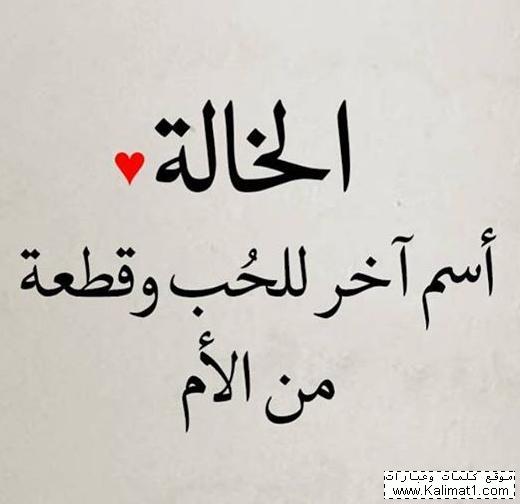 الخالة♥
أسم آخر للحُب وقطعة
من الأم
موقع كلمات وعبارات
www.Kalimat1.com